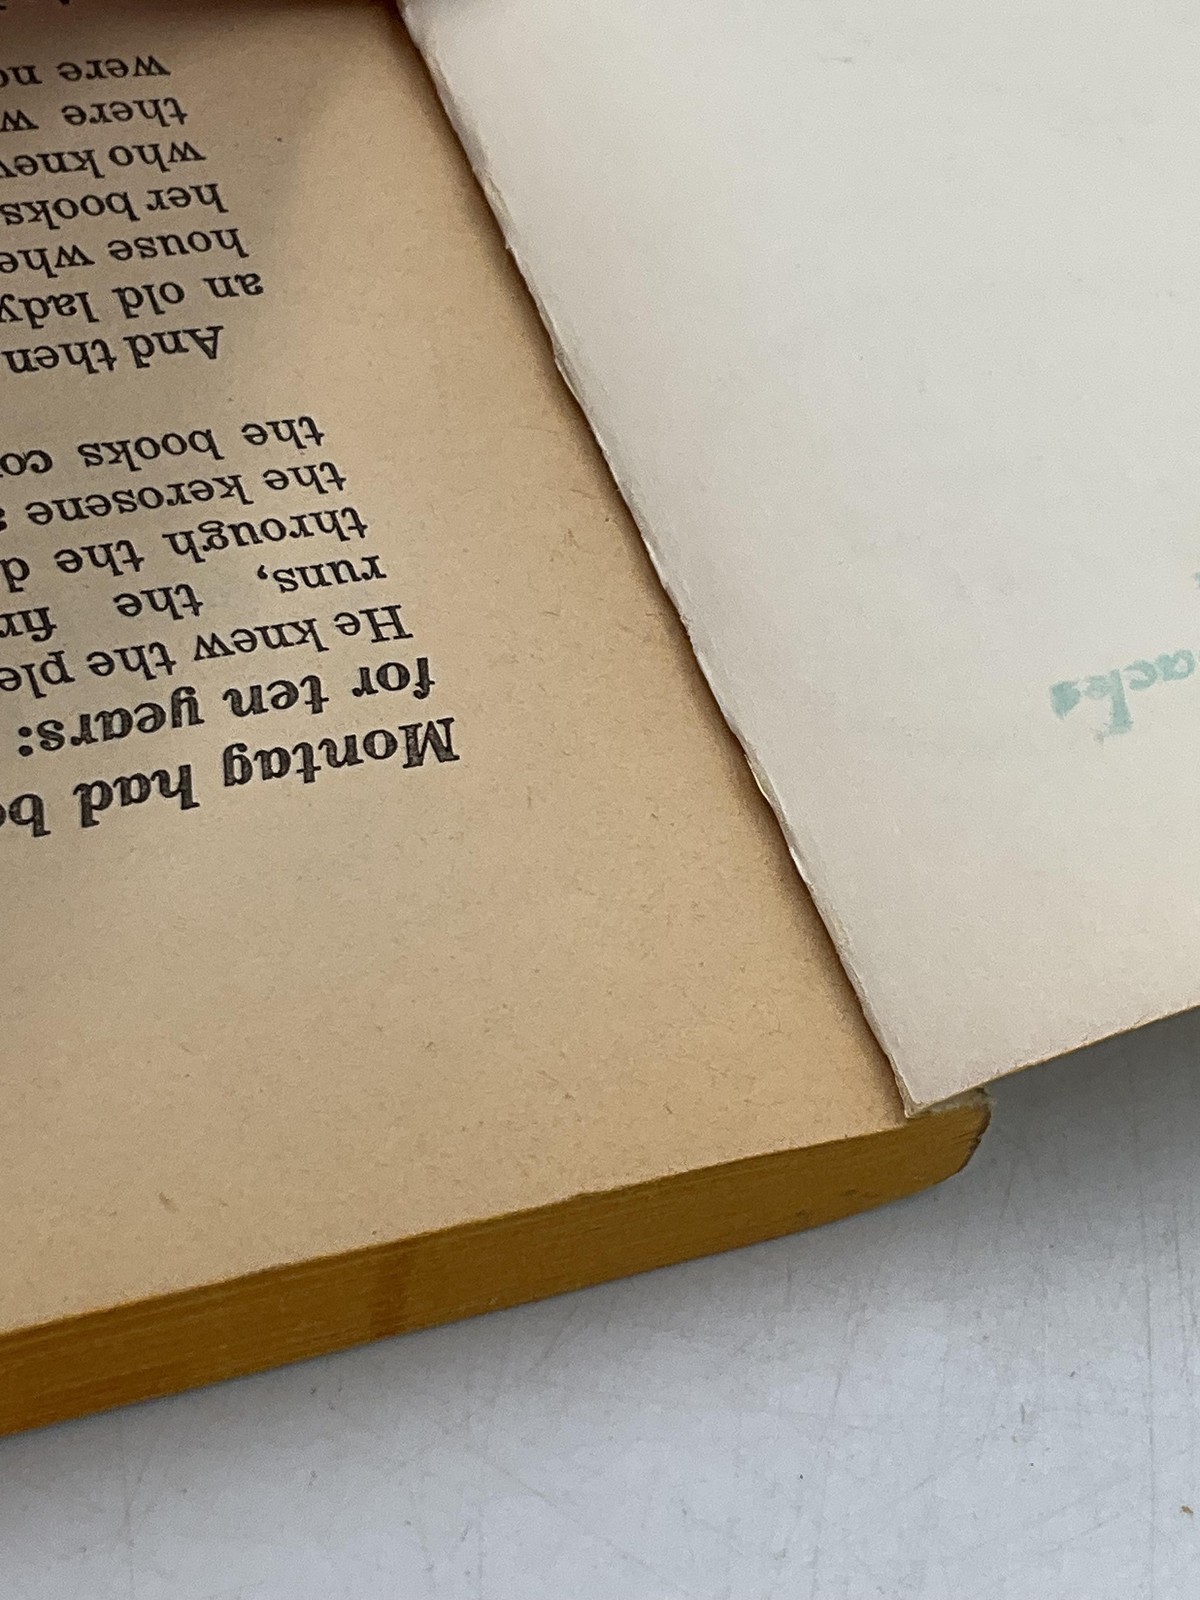 Montag had b
for ten years:
He knew the ple
runs, the fir
through the d
the kerosene a
the books co
And then
an old lady
house whe
her books
who knew
there w
were no
acks